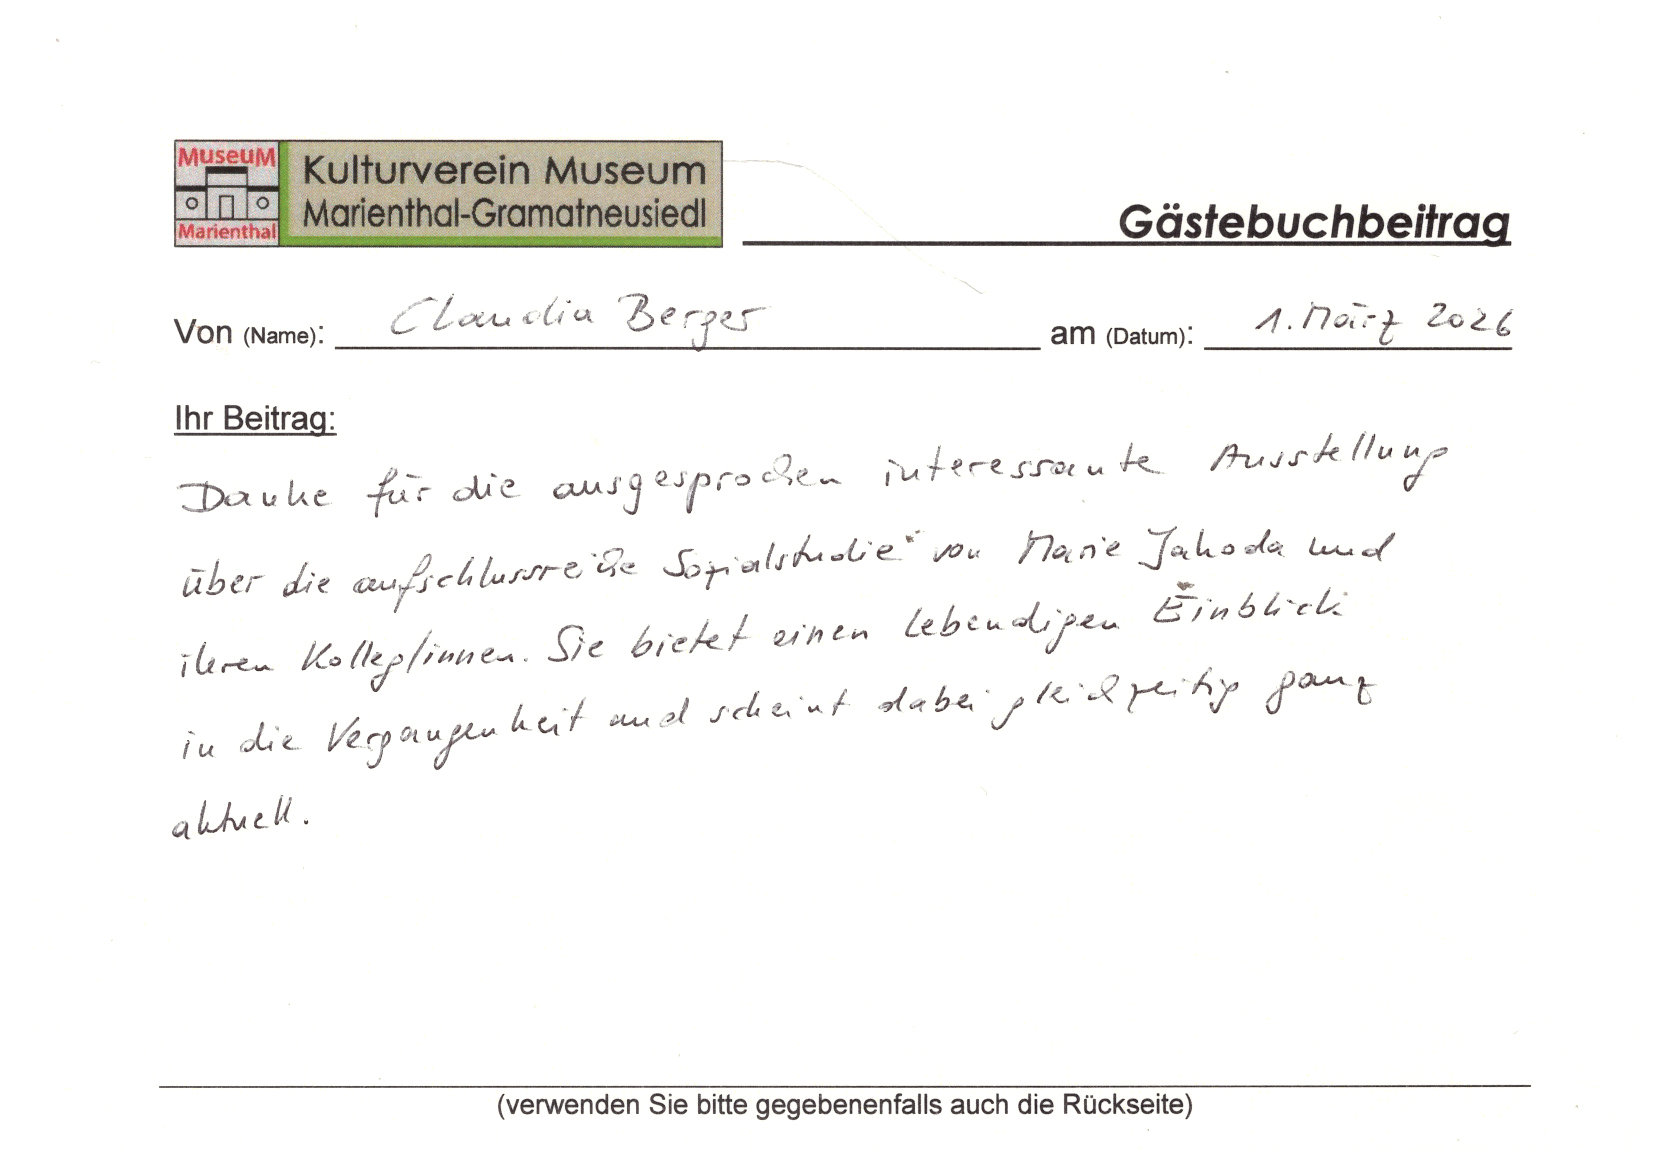 MuseuM
Marienthal
Kulturverein Museum
Marienthal-Gramatneusiedl
Gästebuchbeitrag
Von (Name): Claudia Berger am (Datum): 1. März 2026
Ihr Beitrag:
Danke für die ausgesprochen interessante Ausstellung
über die aufschlussreiche Sozialstudie von Marie Jahoda und
ihren Kolleg/innen. Sie bietet einen lebendigen Einblick
in die Vergangenheit und scheint dabei gleichzeitig ganz
aktuell.
(verwenden Sie bitte gegebenenfalls auch die Rückseite)